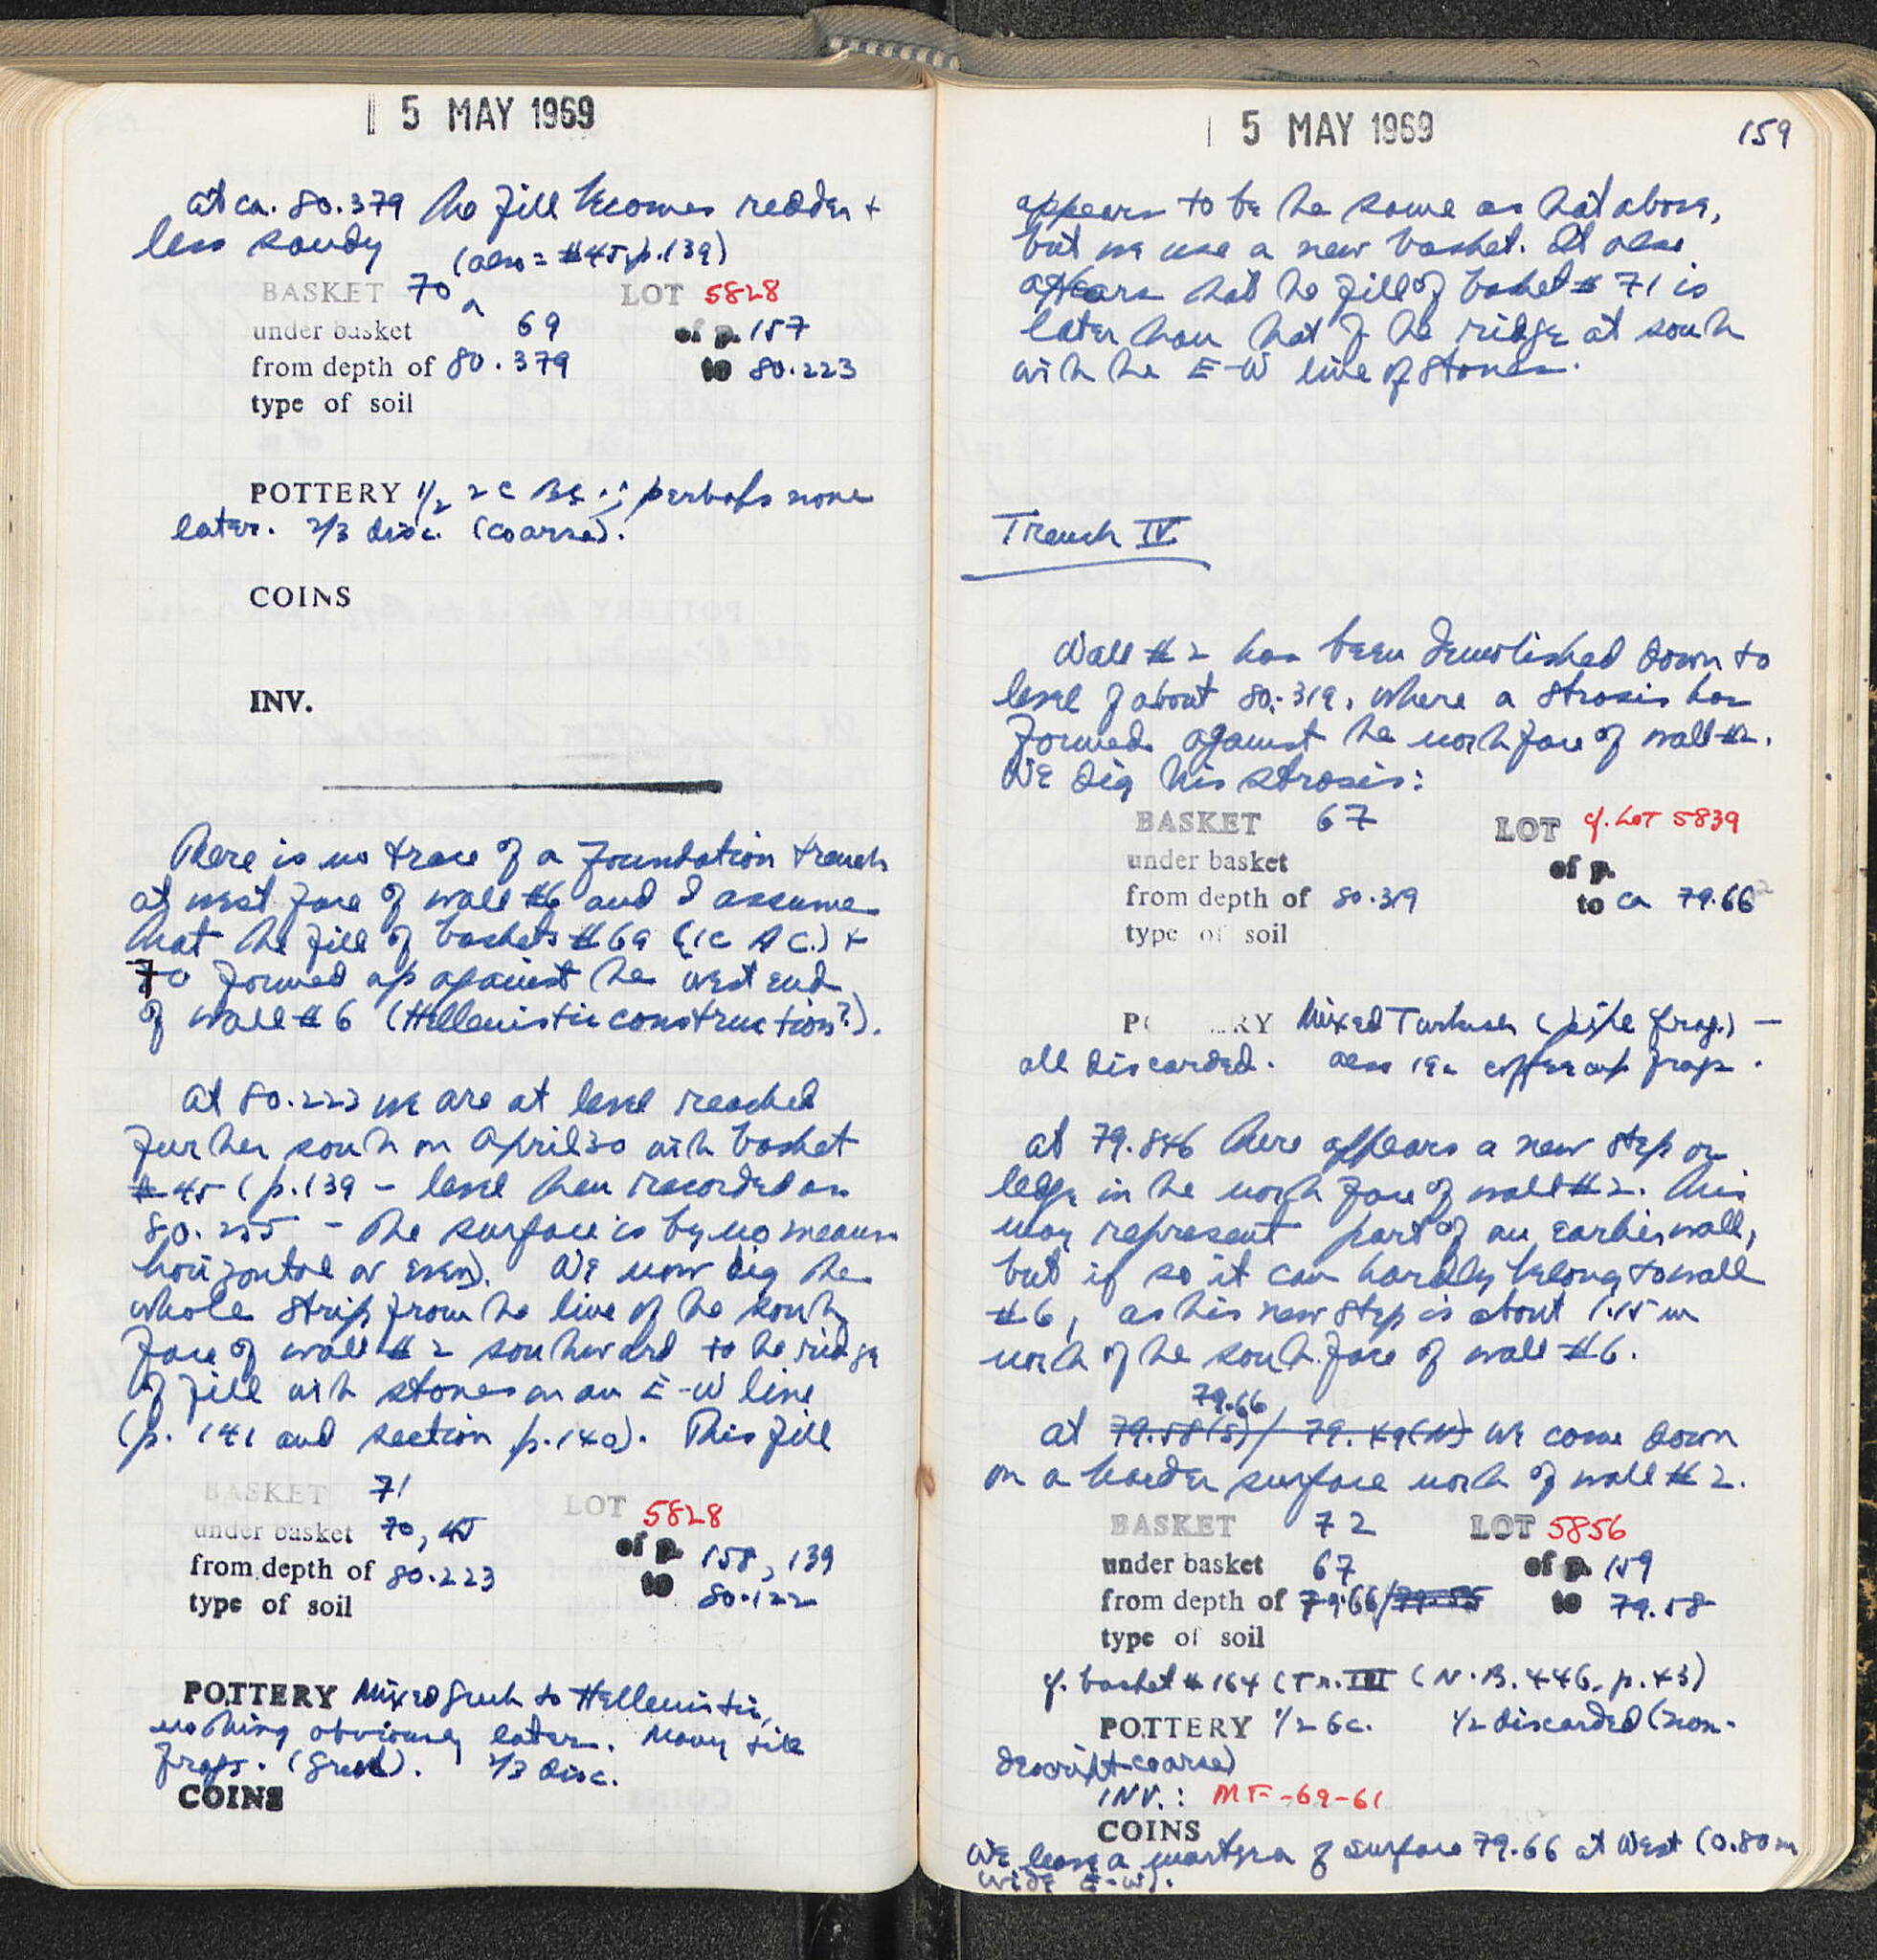 5 MAY 1969
at ca. 80.379 the fill becomes redder +
less sandy (also = #45, p. 139)
BASKET 70 LOT 5828
under basket 69 of p. 157
from depth of 80.379 to 80.223
type of soil
POTTERY 1/2 2 C BC.; perhaps none
later. 2/3 disc. (coarse).
COINS
INV.
There is no trace of a foundation trench
at west face of wall #6 and I assume
that the fill of baskets #69 (1C AC.) +
70 formed up against the west end
of wall #6 (Hellenistic construction?).
At 80.223 we are at level reached
further south on April 30 with basket
#45 (p. 139 - level then recorded as
80.255 - the surface is by no means
horizontal or even). We now dig the
whole strip from the line of the south
face of wall #2 southward to the ridge
of fill with stones on an E-W line
(p. 141 and section p. 140). This fill
BASKET 71 LOT 5828
under basket 70, 45 of p. 158, 139
from depth of 80.223 to 80.122
type of soil
POTTERY Mixed Greek to Hellenistic,
nothing obviously later. Many tile
frags. (Greek). 2/3 disc.
COINS
5 MAY 1969 159
appears to be the same as that above,
but we use a new basket. It also
appears that the fill of basket #71 is
later than that of the ridge at south
with the E-W line of stones.
Trench IV
Wall #2 has been demolished down to
level of about 80.319, where a strosis has
formed against the north face of wall #2.
We dig this strosis:
BASKET 67 LOT cf. LOT 5839
under basket of p.
from depth of 80.319 to ca 79.66
type of soil
POTTERY Mixed Turkish (pipe frag.) -
all discarded. Also coffee cup frags.
at 79.846 there appears a new step or
ledge in the north face of wall #2. This
may represent part of an earlier wall,
but if so it can hardly belong to wall
#6, as this new step is about 1.15 m
north of the south face of wall #6.
79.66
at 79.58(S)/79.49(N) we come down
on a harder surface north of wall #2.
BASKET 72 LOT 5856
under basket 67 of p. 159
from depth of 79.66/ to 79.58
type of soil
cf. basket #164 (Tr. III (N.B. 446, p. 43)
POTTERY 1/2 6c. 1/2 discarded (non-
descript + coarse)
INV.: MF-69-61
COINS
We leave a martyra of surface 79.66 at West (0.80 m
wide E-W).